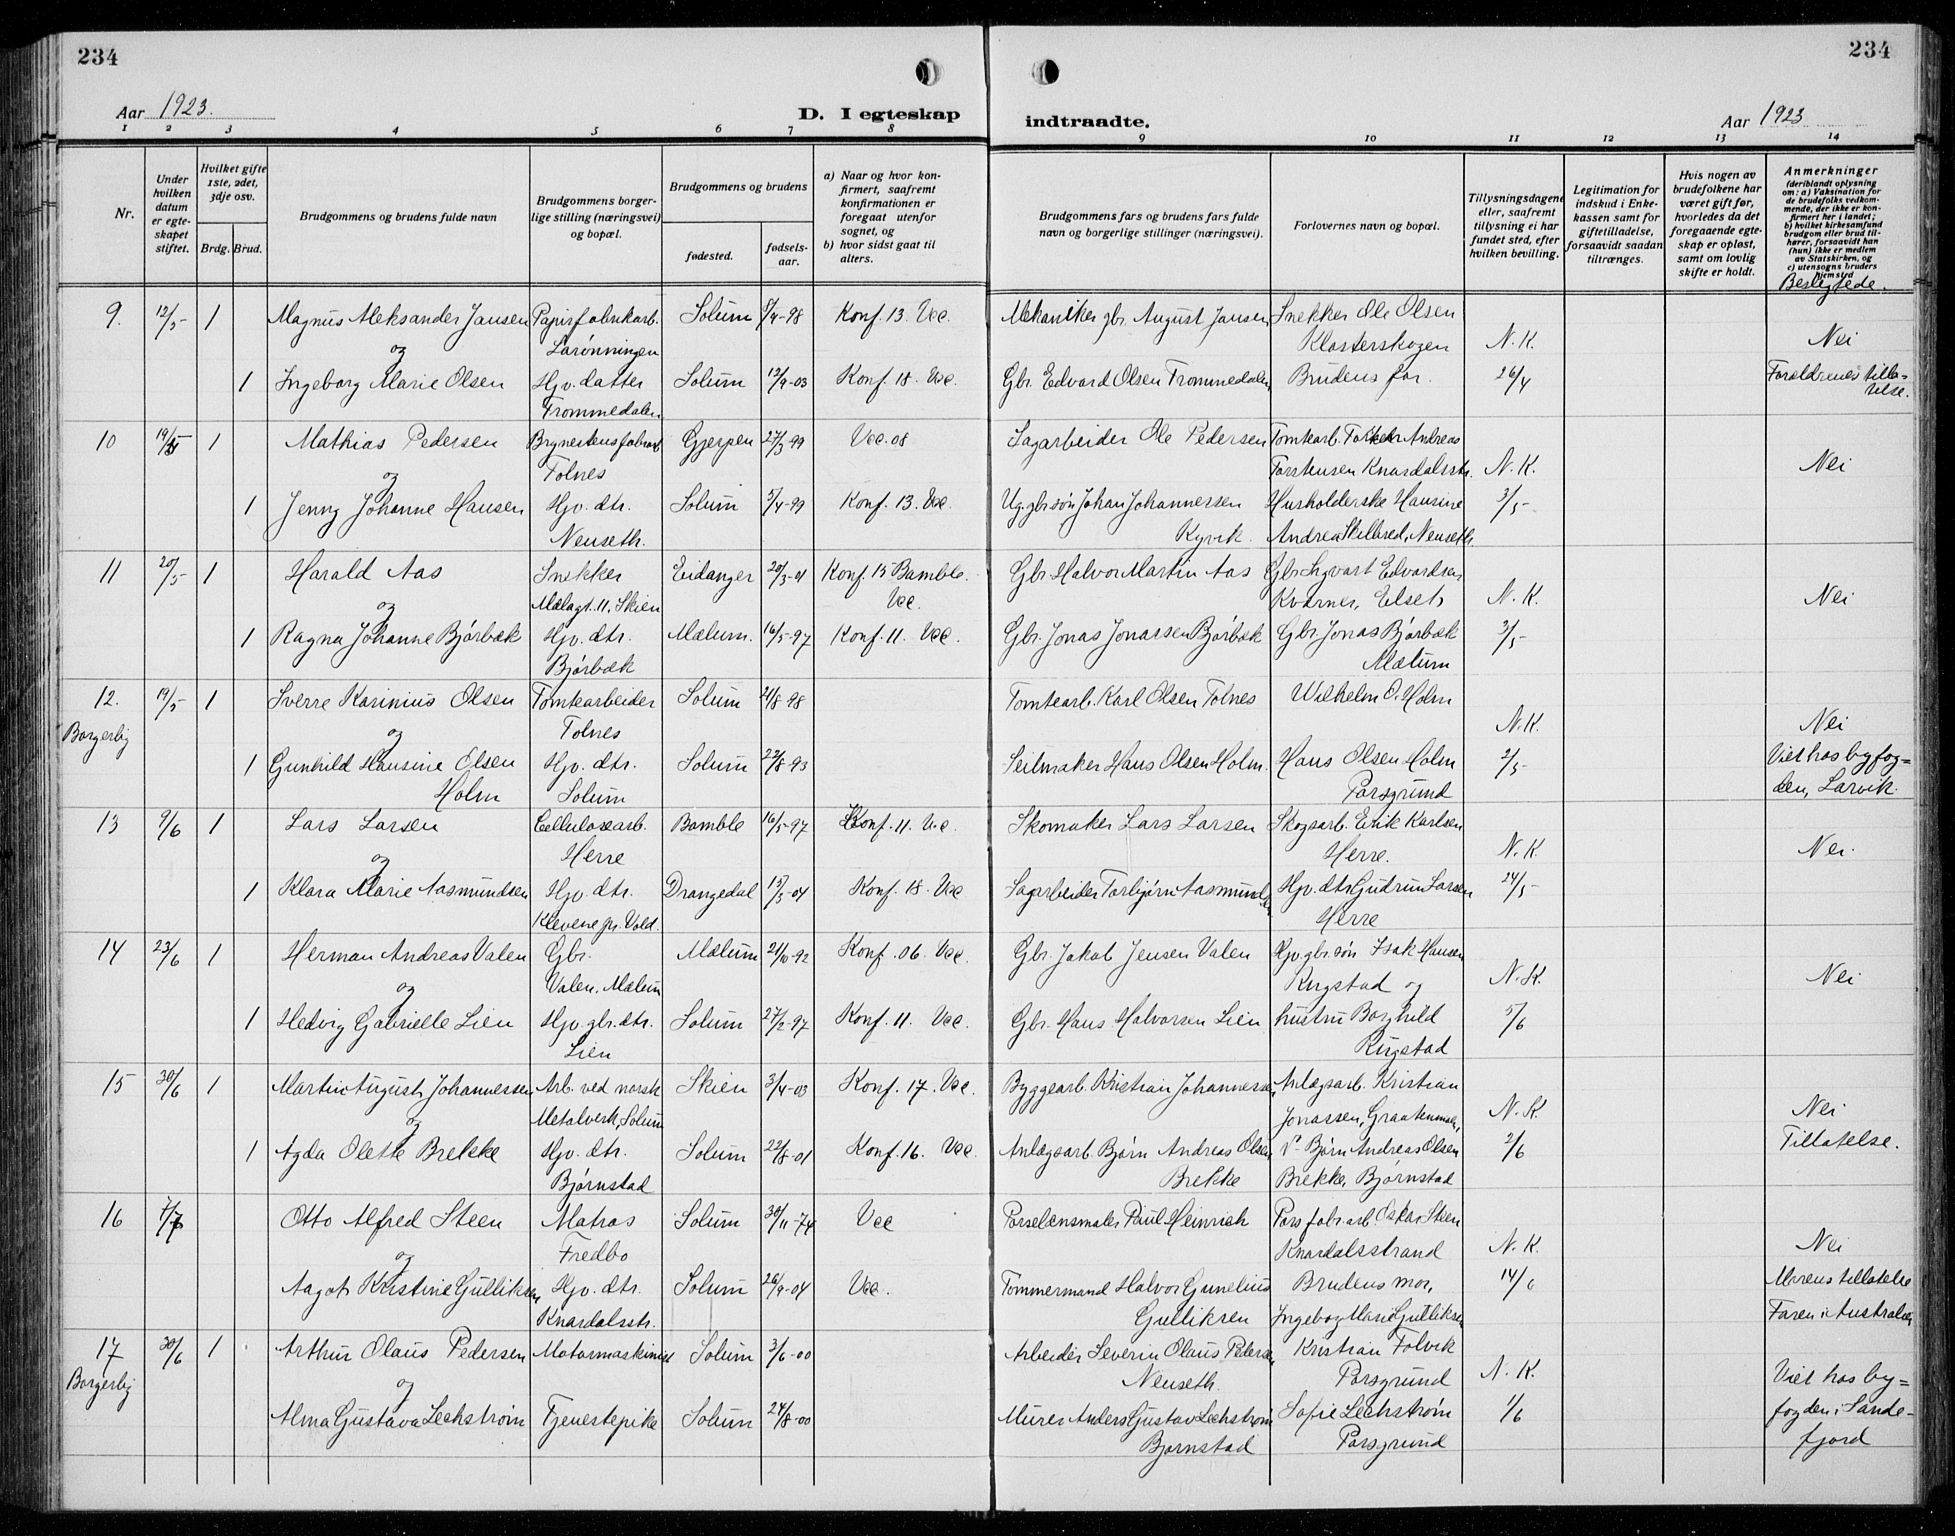 234
234
Aar 1923.
D. I egteskap
indtraadte.
Aar 1923
1 2 3 4 5 6 7 8
9 10 11 12 13 14
Nr.
Under hvilken datum er egte-skapet stiftet.
Hvilket gifte 1ste, 2det, 3dje osv.
Brdg. Brud.
Brudgommens og brudens fulde navn
Brudgommens borger-lige stilling (næringsvei) og bopæl.
Brudgommens og brudens
fødested.
fødsels-aar.
a) Naar og hvor kon-firmert, saafremt konfirmationen er foregaat utenfor sognet, og
b) hvor sidst gaat til alters.
Brudgommens fars og brudens fars fulde navn og borgerlige stillinger (næringsvei).
Forlovernes navn og bopæl.
Tillysningsdagene eller, saafremt tillysning ei har fundet sted, efter hvilken bevilling.
Legitimation for indskud i Enke-kassen samt for giftetilladelse, forsaavidt saadan tiltrænges.
Hvis nogen av brudefolkene har været gift før, hvorledes da det foregaaende egte-skap er opløst, samt om lovlig skifte er holdt.
Anmerkninger
(deriblandt oplysning om: a) Vaksination for de brudefolks vedkom-mende, der ikke er kon-firmert her i landet; b) hvilket kirkesamfund brudgom eller brud til-hører, forsaavidt han (hun) ikke er medlem av Statskirken, og c) utensogns bruders hjemsted
Beslegtede.
9. 12/5 1 Magnus Aleksander Jansen Papirfabrikarb. Solum 8/4-98 Konf. 13. Vec. Mekaniker gbr. August Jansen Snekker Ole Olsen
og Larønningen Klosterskogen N. K. Nei
1 Ingeborg Marie Olsen Hjv. datter Solum 12/9-03 Konf. 18. Vec. Gbr. Edvard Olsen Trommedalen Brudens far. 26/4 Forældrenes tilla=
Trommedalen telse.
10 19/5 1 Mathias Pedersen Brynestensfabrarb Gjerpen 27/3-99 Vec. 08 Sagarbeider Ole Pedersen Tomtearb. Torkel Andreas
og Tolnes Torstensen Knardalsstr. N. K. Nei
1 Jenny Johanne Hansen Hjv. dtr. Solum 5/4-99 Konf. 13. Vec. Ug. gbr søn Johan Johannessen Husholderske Hansine 3/5-
Neuseth. Kyvik. Andrea Skilbred, Neuseth.
11 20/5 1 Harald Aas Snekker Eidanger 20/3-01 Konf. 15 Bamble. Gbr. Halvor Martin Aas Gbr. Sigvart Edvardsen
og Mælagt. 11, Skien Vec. Kvarnes, Elset N. K. Nei
1 Ragna Johanne Bjørbæk Hjv. dtr. Mælum. 16/5-97 Konf. 11. Vec. Gbr. Jonas Jonassen Bjørbæk Gbr. Jonas Bjørbæk 3/5-
Bjørbæk Mælum
12. 19/5 1 Sverre Karinius Olsen Tomtearbeider Solum 21/8 98 Tomtearb. Karl Olsen Tolnes Wilhelm O. Holm
Borgerlig og Tolnes N. K. Nei
1 Gunhild Hansine Olsen Hjv. dtr. Solum 22/8-93 Seilmaker Hans Olsen Holm. Hans Olsen Holm 2/5- Viet hos byfog=
Holm Solum Porsgrund den, Larvik.
13 9/6 1 Lars Larsen Cellulosearb. Bamble 16/5-97 Konf. 11. Vec. Skomaker Lars Larsen Skogsarb. Erik Karlsen
og Herre Herre. N. K. Nei.
1 Klara Marie Aasmundsen Hjv. dtr. Drangedal 15/3-04 Konf. 18. Vec Sagarbeider Torbjørn Aasmundsen Hjv. dtr Gudrun Larsen 24/5-
Klevene pr. Vold. Herre
14 23/6 1 Herman Andreas Valen Gbr. Mælum 21/10-92 Konf. 06. Vec. Gbr. Jakob Jensen Valen Hjv. gbr. søn Isak Hansen
og Valen. Mælum Rugstad og N. K. Nei
1 Hedvig Gabrielle Lien Hjv. gbr. dtr. Solum 27/2-97 Konf. 11. Vec. Gbr. Hans Halvorsen Lien hustru Borghild 5/6
Lien Rugstad
15 30/6 1 Martin August Johannessen Arb. ved norsk Skien 3/4-03 Konf. 17. Vec. Byggearb. Kristian Johannessen Anlægsarb. Kristian
og Metalverk, Solum Jonassen, Graatenmoen, N. K. Nei
1 Agda Olette Brekke Hjv. dtr. Solum 22/8-01 Konf. 16. Vec. Anlægsarb. Bjørn Andreas Olsen Bjørn Andreas Olsen 2/6 Tillatelse.
Bjørnstad Brekke Brekke, Bjørnstad
16 7/7 Otto Alfred Steen Matros Solum 30/11-74 Vec Porselænsmaler Paul Heinrich Pors fabr arb. Oskar Steen
og Fredbo Knardalsstrand N. K. Nei
Aagot Kristine Gulliksen Hjv. dtr. Solum 26/9-04 Vec. Tømmermand Halvor Gunelius Brudens mor, 14/6 Morens tillatelse
Knardalsstr. Gulliksen Ingeborg Marie Gulliksen Faren i Australien
17 30/6 1 Arthur Olaus Pedersen Motormaskinist Solum 3/6-00 Arbeider Severin Olaus Pedersen Kristian Folvik
Borgerlig og Neuseth. Porsgrund N. K. Viet hos by=
Alma Gustava Lechstrøm Tjenestepike Solum 24/8-00 Murer Anders Gustav Lechstrøm Sofie Lechstrøm 1/6 fogden i Sande-
Bjørnstad Porsgrund fjord